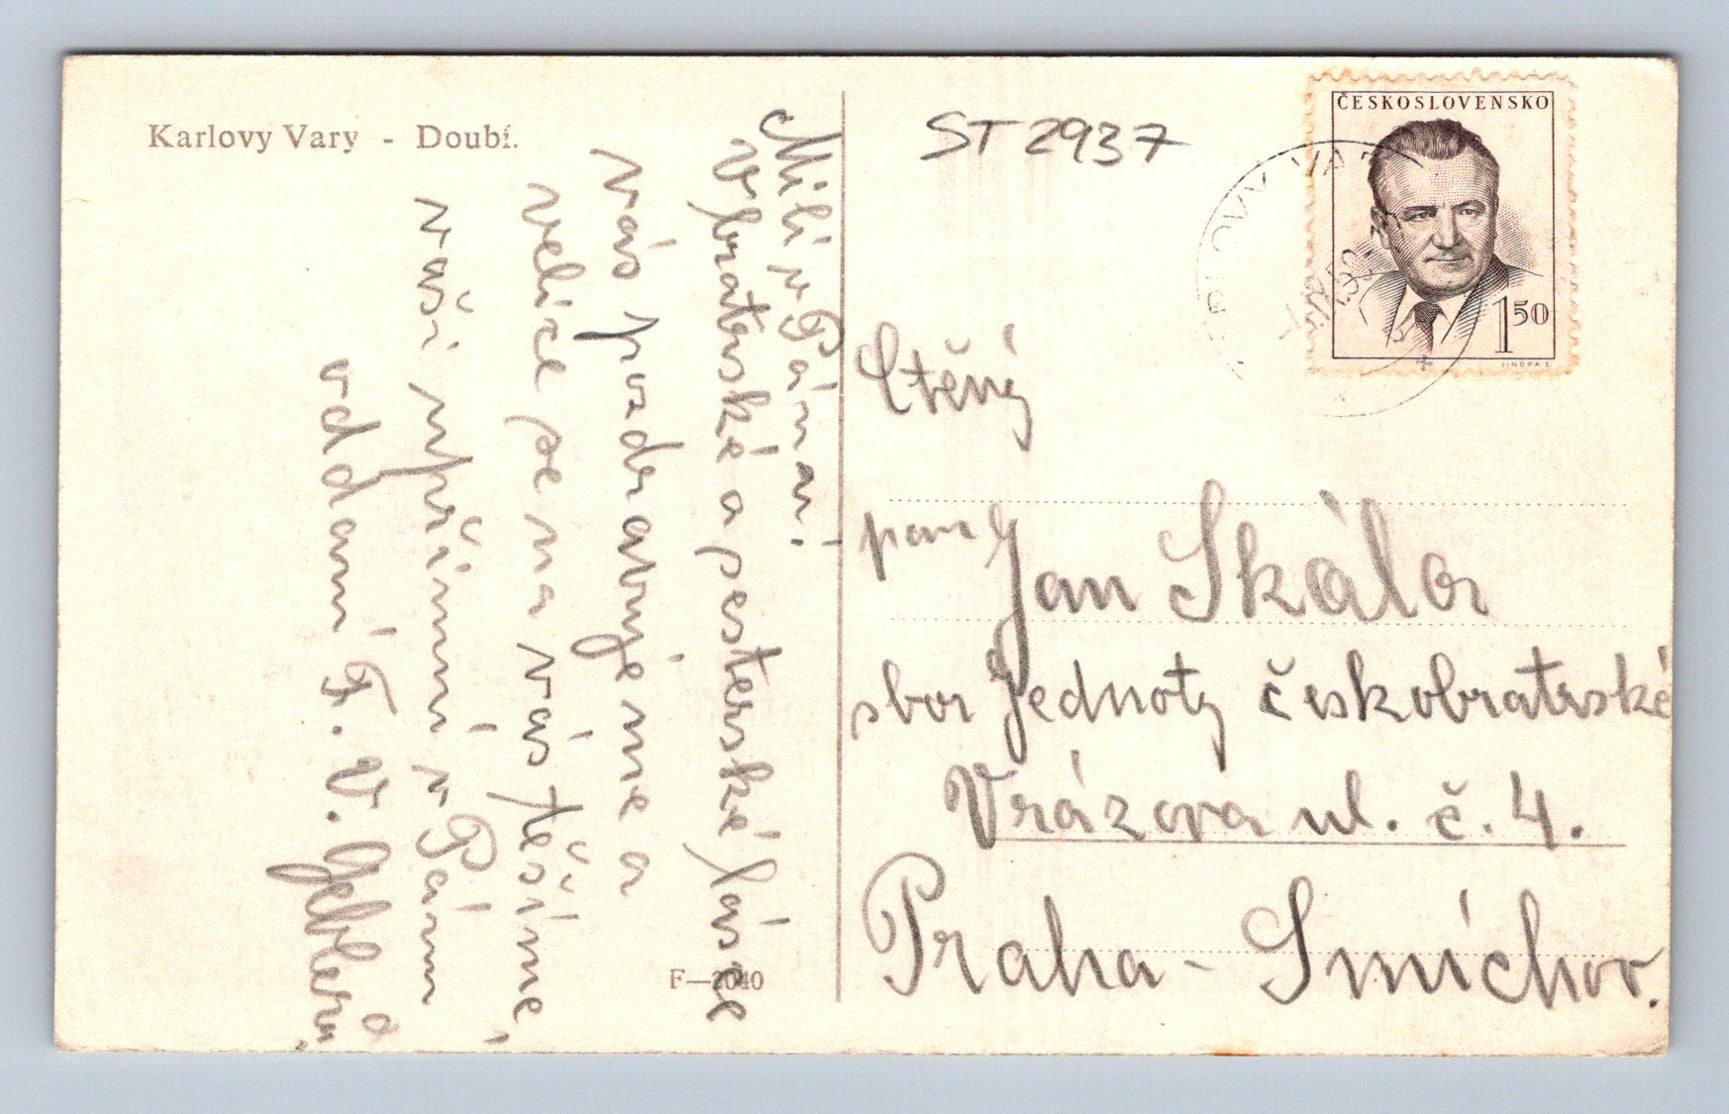 Karlovy Vary - Doubí.
Milí v Pánu!
V bratrské a sesterské lásce
vás pozdravujeme a
velice se na vás těšíme,
vaši upřímní v Pánu
oddaní F. V. Geblerovi
F—2040
ST 2937
ČESKOSLOVENSKO
1 50
JINDRA S.
KARLOVY VARY
Ctěný
pan
Jan Skála
sbor Jednoty českobratrské
Vrázova ul. č. 4.
Praha - Smíchov.